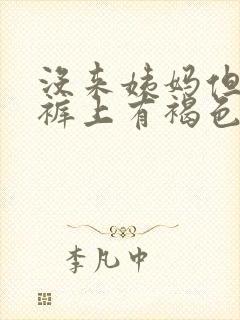 没来姨妈但
裤上有褐色
李凡中